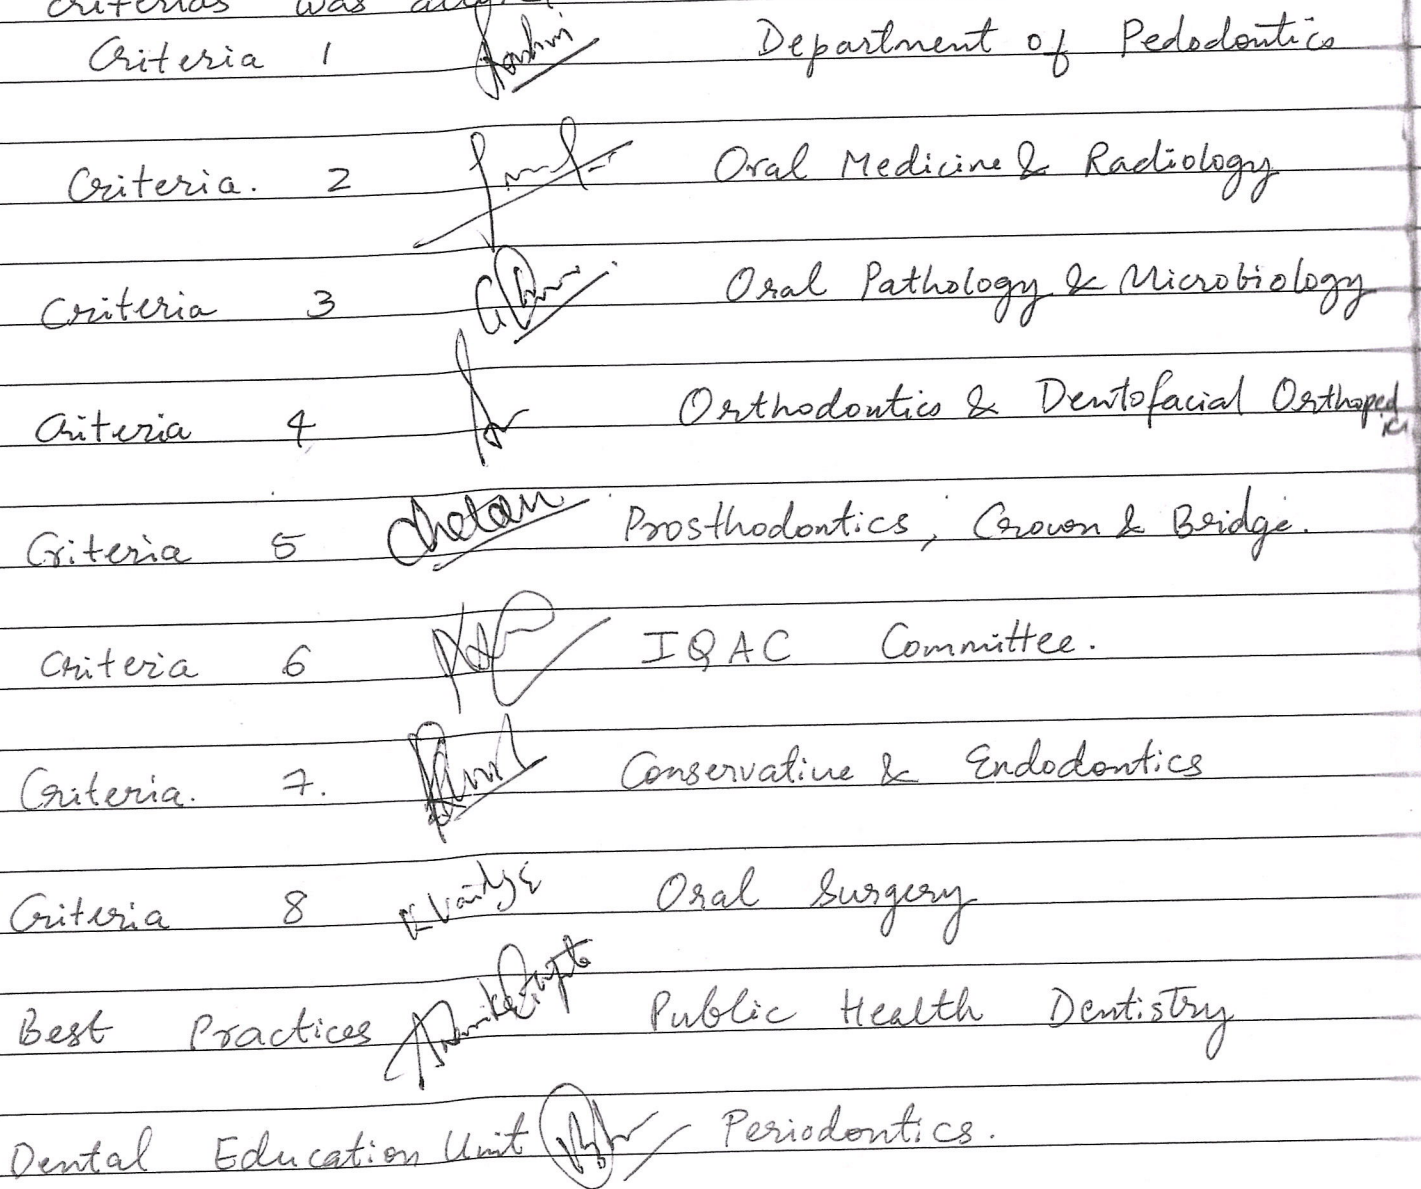 criterias was
Criteria 1 Department of Pedodontics
Criteria. 2 Oral Medicine & Radiology
Criteria 3 Oral Pathology & Microbiology
Criteria 4 Orthodontics & Dentofacial Orthopedics
Criteria 5 Chetan Prosthodontics, Crown & Bridge.
Criteria 6 IQAC Committee.
Criteria. 7. Conservative & Endodontics
Criteria 8 Oral Surgery
Best Practices Public Health Dentistry
Dental Education Unit Periodontics.